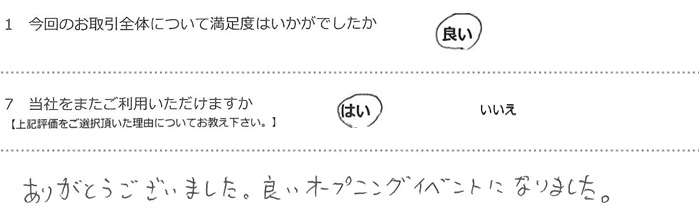 1 今回のお取引全体について満足度はいかがでしたか 良い
7 当社をまたご利用いただけますか はい いいえ
【上記評価をご選択頂いた理由についてお教え下さい。】
ありがとうございました。良いオープニングイベントになりました。